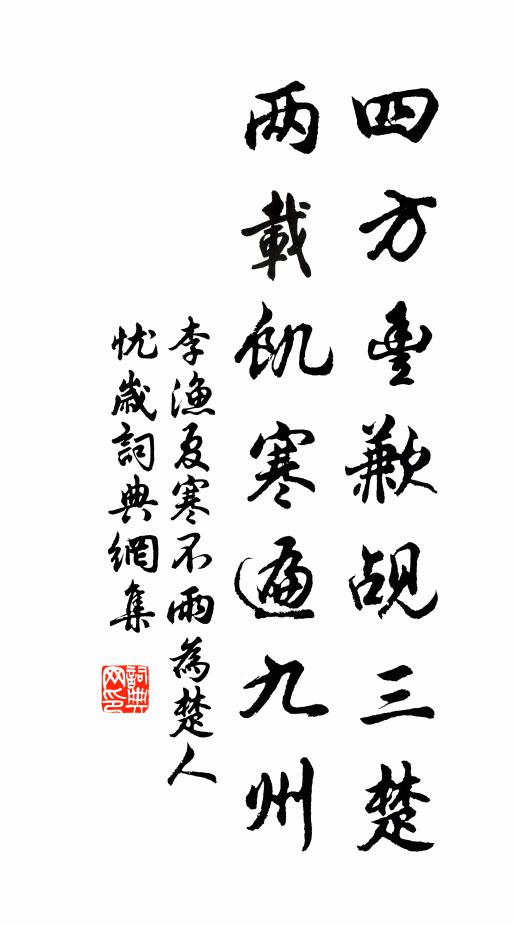 四方豐歉覘三楚
两載飢寒遍九州
李漁夏寒不雨為楚人
忧歲詞典網集
詞典
网印